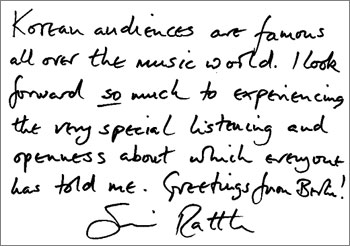 Korean audiences are famous
all over the music world. I look
forward so much to experiencing
the very special listening and
openness about which everyone
has told me. Greetings from Berlin!
Simon Rattle